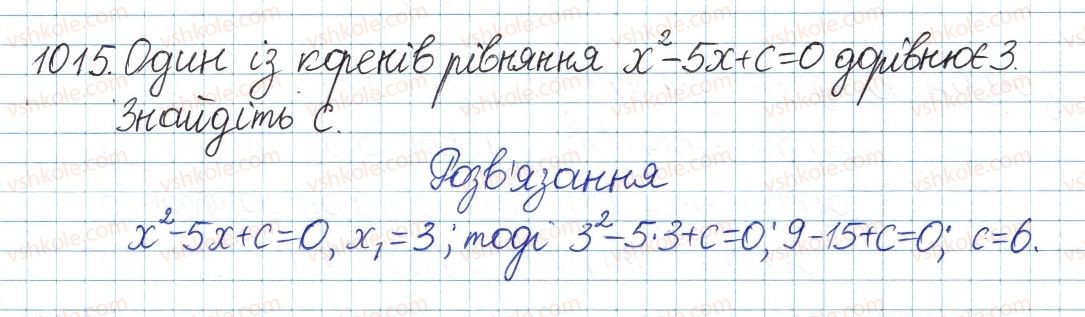 1015. Один із коренів рівняння x²-5x+c=0 дорівнює 3.
Знайдіть c.
Розв'язання
x²-5x+c=0, x₁=3; тоді 3²-5·3+c=0; 9-15+c=0; c=6.